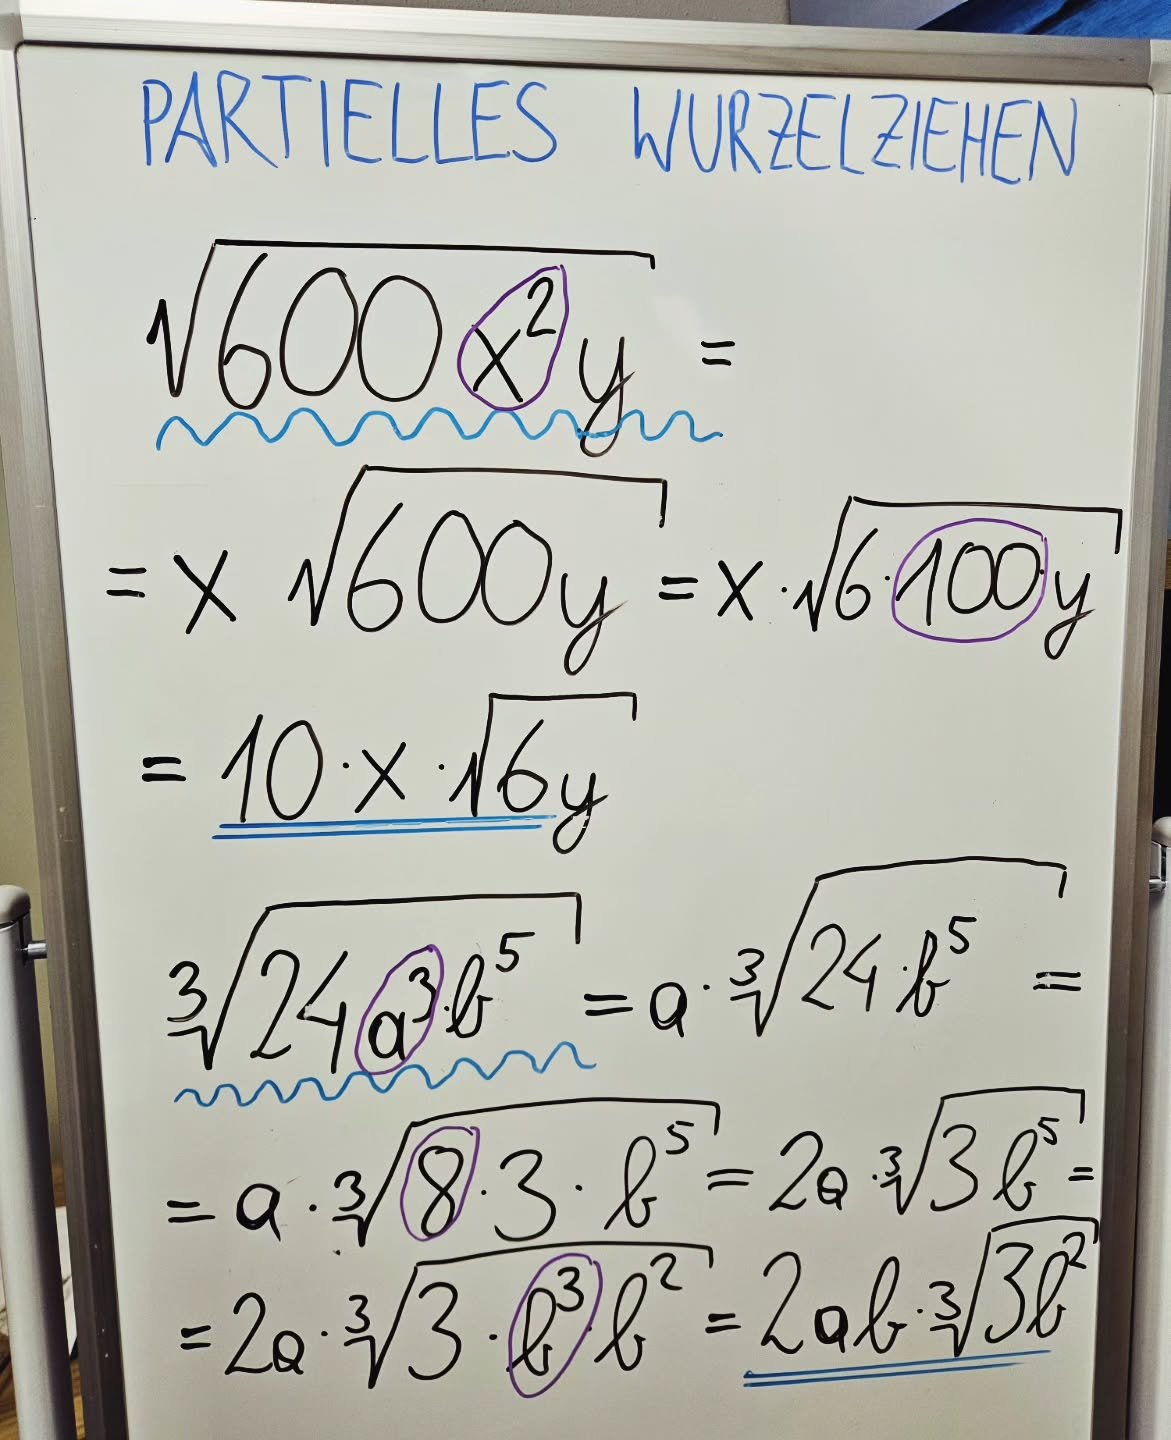 PARTIELLES WURZELZIEHEN
√600x²y =
= x √600y = x · √6·100·y
= 10 · x · √6y
³√24a³·b⁵ = a · ³√24·b⁵ =
= a · ³√8·3·b⁵ = 2a · ³√3b⁵ =
= 2a · ³√3·b³·b² = 2ab · ³√3b²